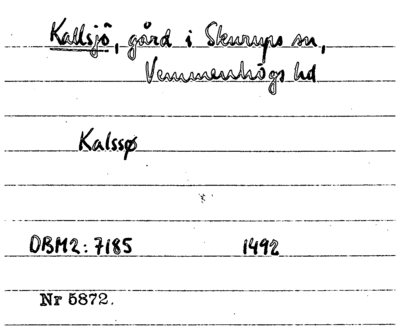 Kallsjö, gård i Skurups sn,
Vemmenhögs hd
Kalssø
DBM2: 7185 1492
Nr 5872.